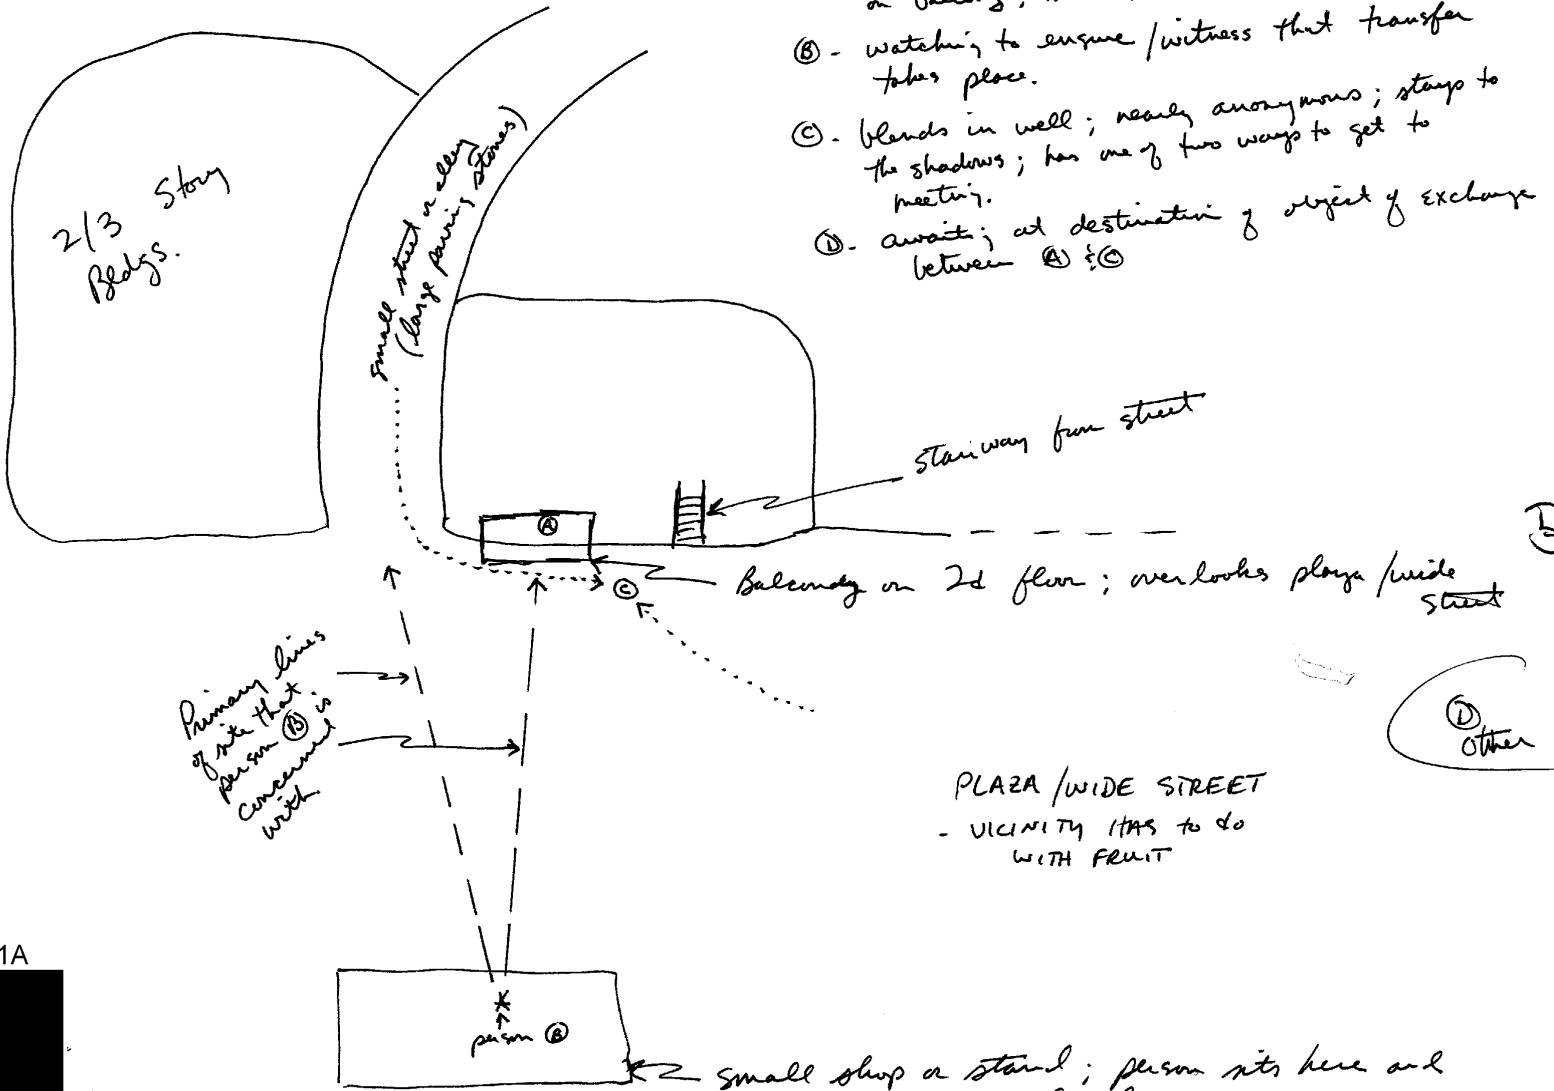 on balcony;
Ⓑ - watching to ensure / witness that transfer
takes place.
Ⓒ - blends in well; nearly anonymous; stays to
the shadows; has one of two ways to get to
meeting.
Ⓓ - awaits; at destination of object of exchange
between Ⓐ & Ⓒ
2/3 Story
Bldgs.
small street or alley
(large paving stones)
stairway from street
Ⓐ
Balcony on 2d floor; overlooks plaza/wide
street
Ⓒ
Primary lines
of site that
person Ⓑ is
concerned
with.
Ⓓ
Other
PLAZA/WIDE STREET
- VICINITY HAS to do
WITH FRUIT
1A
person Ⓑ
small shop or stand; person sits here and